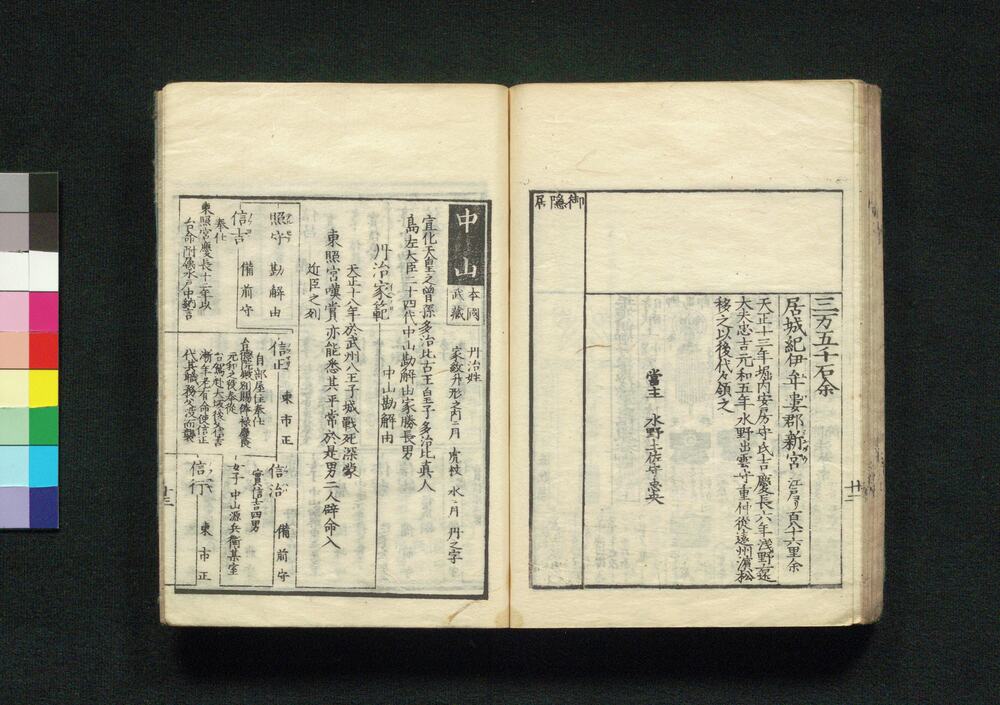 三万五千石余
居城紀伊牟婁郡新宮 江戸ヨリ百八十六里余
天正十三年堀内安房守氏吉慶長六年浅野
大夫忠吉元和五年水野出雲守重仲従遠州濱松
移之以後代々領之
當主 水野土佐守忠央
御隠居
廿二
中山
本國
武藏
丹治姓
家紋升形之内二月 虎杖 水ニ月 丹之字
宣化天皇之曽孫多治比古王皇子多治比真人
島左大臣二十四代中山勘解由家勝長男
丹治家範 中山勘解由
天正十八年於武州八王子城戰死深蒙
東照宮嘆賞亦能悉其平常於是男二人辟命入
近臣之列
照守 勘解由
信吉 備前守
奉仕
東照宮慶長十二年以
台命附属水戸中納言
信正 東市正
自部屋住奉仕
元和之役奉従
台駕赴大坂後信吉
漸年老有命使信正
代其職務父没而襲
信治 備前守
實信吉四男
女子 中山源兵衛某室
信行 東市正
廿三